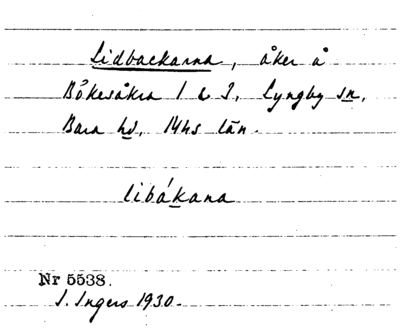 Lidbackarna, åker å
Bökesåkra 1 & 3, Lyngby sn,
Bara hd. Mhs län.
libákana
Nr 5538.
I. Ingers 1930.